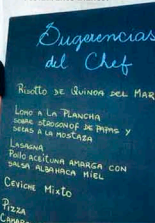 Sugerencias
del Chef
Risotto de Quinoa del Mar
Lomo a la Plancha
sobre strogonof de papas y
setas a la mostaza
Lasagna
Pollo aceituna amarga con
salsa albahaca miel
Ceviche Mixto
Pizza